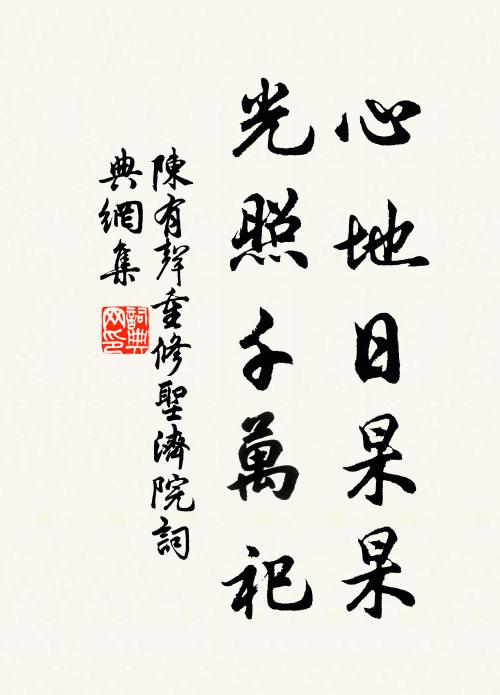 心地日杲杲
光照千萬祀
陳有聲重修聖濟院詞
典網集
詞典
网印